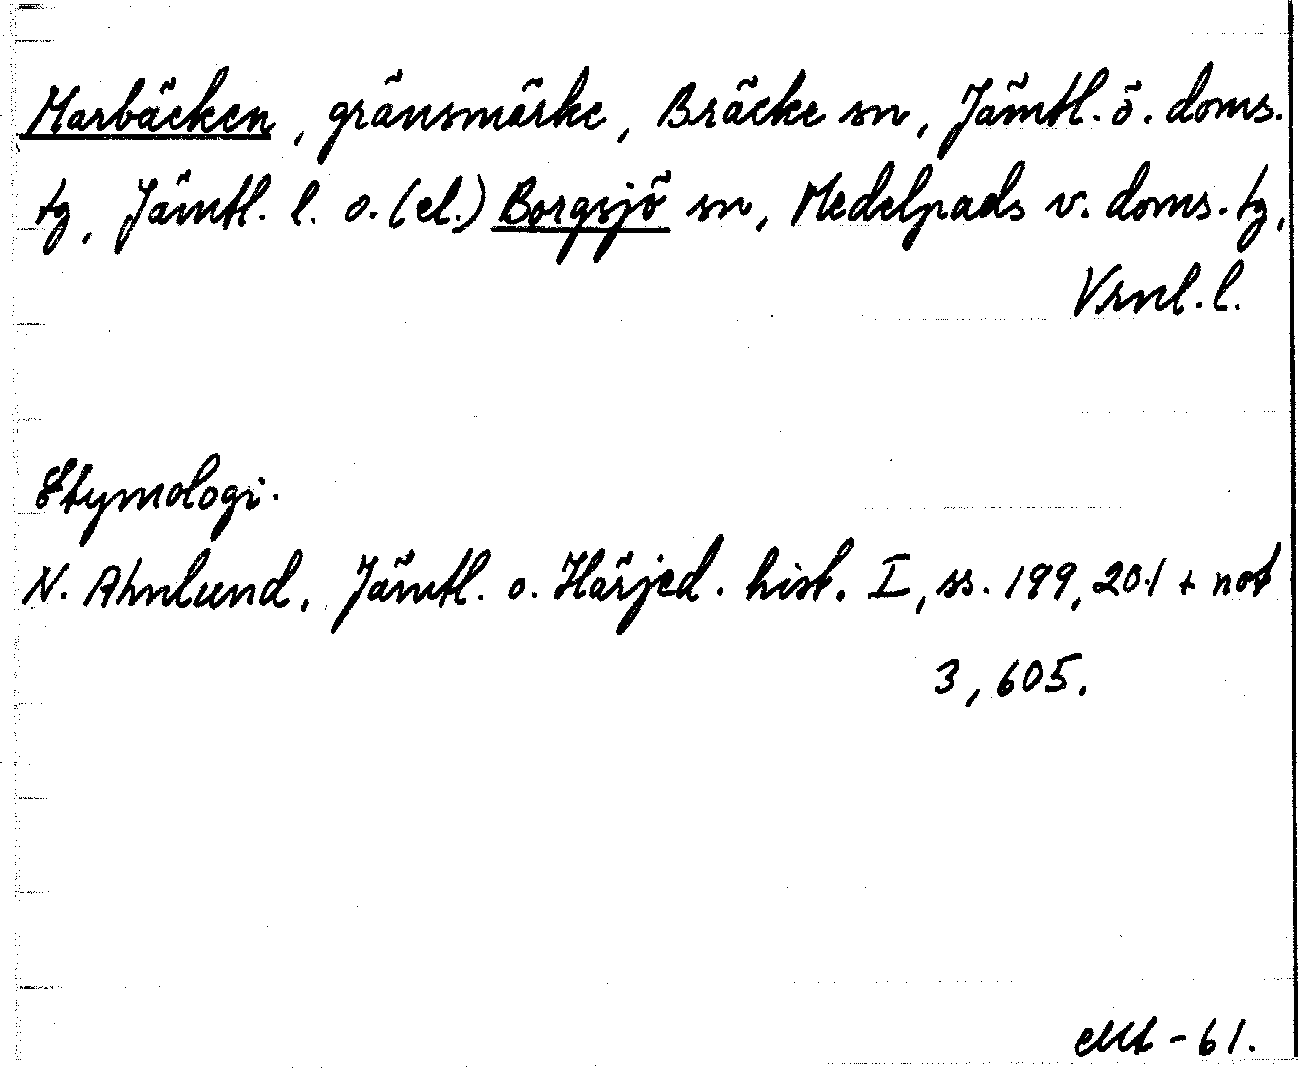 Marbäcken, gränsmärke, Bräcke sn, Jämtl. ö. doms.
tg, Jämtl. l. o. (el.) Borgsjö sn, Medelpads v. doms. tg,
Vrnl. l.
Etymologi.
N. Ahnlund, Jämtl. o. Härjed. hist. I, ss. 199, 201 + not
3, 605.
-61.